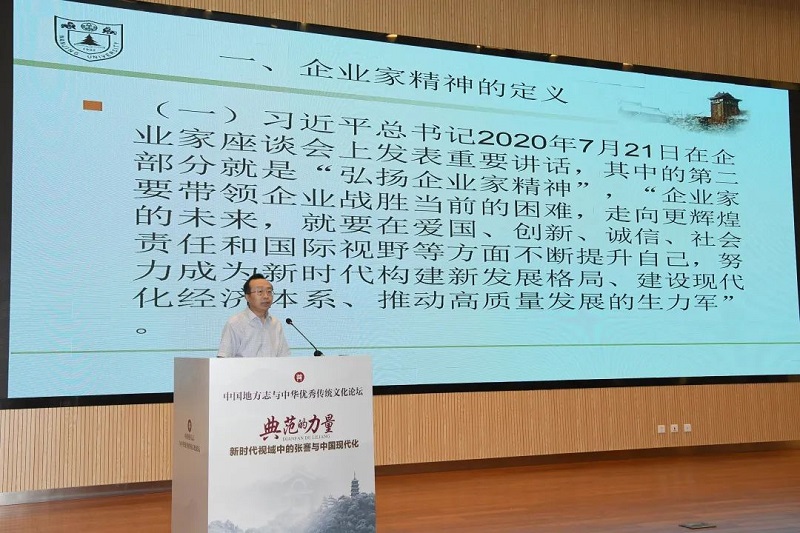 NANJING UNIVERSITY
一、企业家精神的定义
（一）习近平总书记2020年7月21日在企
业家座谈会上发表重要讲话，其中的第二
部分就是“弘扬企业家精神”，“企业家
要带领企业战胜当前的困难，走向更辉煌
的未来，就要在爱国、创新、诚信、社会
责任和国际视野等方面不断提升自己，努
力成为新时代构建新发展格局、建设现代
化经济体系、推动高质量发展的生力军”
。
中国地方志与中华优秀传统文化论坛
典范的力量
DIANFAN DE LILIANG
新时代视域中的张謇与中国现代化